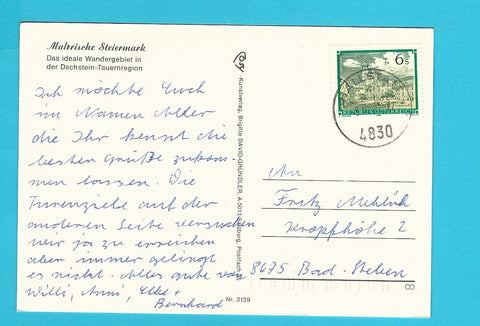 Malerische Steiermark
Das ideale Wandergebiet in
der Dachstein-Tauernregion
Ich möchte Euch
im Namen Aller
die Ihr kennt die
besten Grüße zukom-
men lassen. Die
Turenziele auf der
anderen Seite versuchen
wir ja zu erreichen
aber immer gelingt
es nicht. Alles gute von
Willi, Anni, Elke +
Bernhard
Kunstverlag, Brigitte DAVID-GRÜNDLER, A-5013 Salzburg, Postfach
Nr. 3139
6 S
REPUBLIK ÖSTERREICH
4830
An
Fritz
2
8675 Bad-Steben